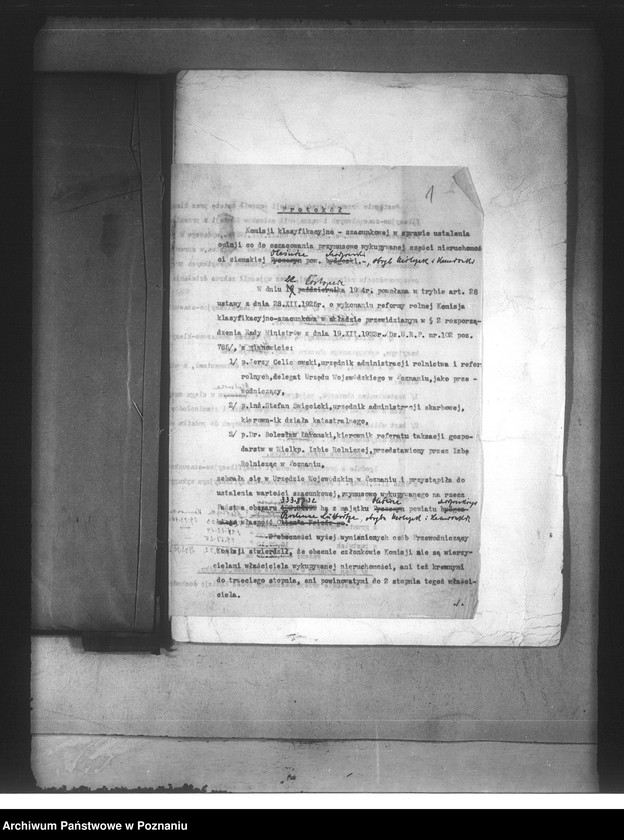 1
Protokół
Komisji klasyfikacyjno - szacunkowej w sprawie ustalenia
opinji co do oszacowania przymusowo wykupywanej części nieruchomoś
ci ziemskiej pow. , obręb
W dniu października 19 r. powołana w trybie art. 28
ustawy z dnia 28.XII.1925r. o wykonaniu reformy rolnej Komisja
klasyfikacyjno-szacunkowa w składzie przewidzianym w § 2 rozporzą-
dzenia Rady Ministrów z dnia 19.XII.1933r./Dz.U.R.P. nr.102 poz.
, a mianowicie:
1/ p.Jerzy ,urzędnik administracji rolnictwa i refor
rolnych,delegat Urzędu Wojewódzkiego w Poznaniu,jako prze -
wodniczący,
2/ p.inż.Stefan Święcicki,urzędnik administracji skarbowej,
kierown-ik działa katastralnego,
3/ p.Dr. Bolesław ,kierownik referatu taksacji gospo-
darstw w Wielkp. Izbie Rolniczej,przedstawiony przez Izbę
Rolniczą w Poznaniu,
zebrała się w Urzędzie Wojewódzkim w Poznaniu i przystąpiła do
ustalenia wartości szacunkowej,przymusowo wykupywanego na rzecz
Państwa obszaru ha z majątku powiatu
własność , obręb
W obecności wyżej wymienionych osób Przewodniczący
Komisji stwierdził, że obecnie członkowie Komisji nie są wierzy-
cielami właściciela wykupywanej nieruchomości, ani też krewnymi
do trzeciego stopnia, ani powinowatymi do 2 stopnia tegoż właści-
ciela.
./.
Archiwum Państwowe w Poznaniu